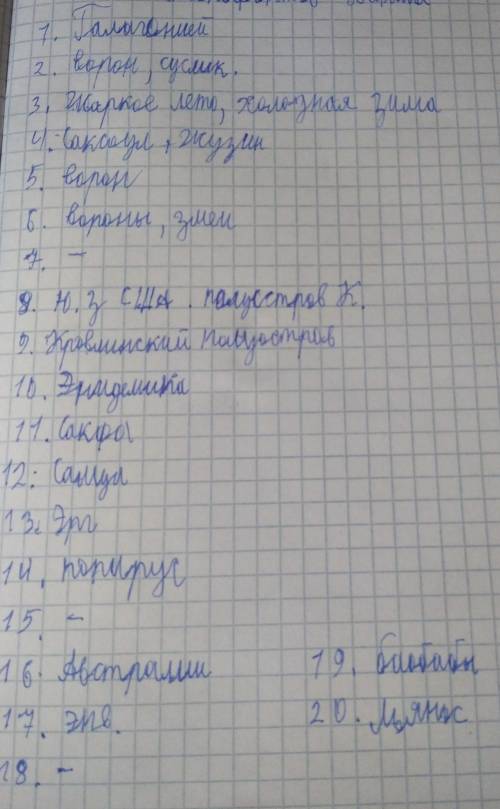 1. Галагоний
2. ворон, суслик.
3. Жаркое лето, холодная зима
4. Саксаул, жузгин
5. ворон
6. вороны, змеи
7. –
8. Ю.З США. полуостров К.
9. полуостров
10. Эпидемика
11.
12. Самул
13. Эрг
14. попирус
15. –
16. Австралии
17. энв.
18. –
19. баобабы
20.